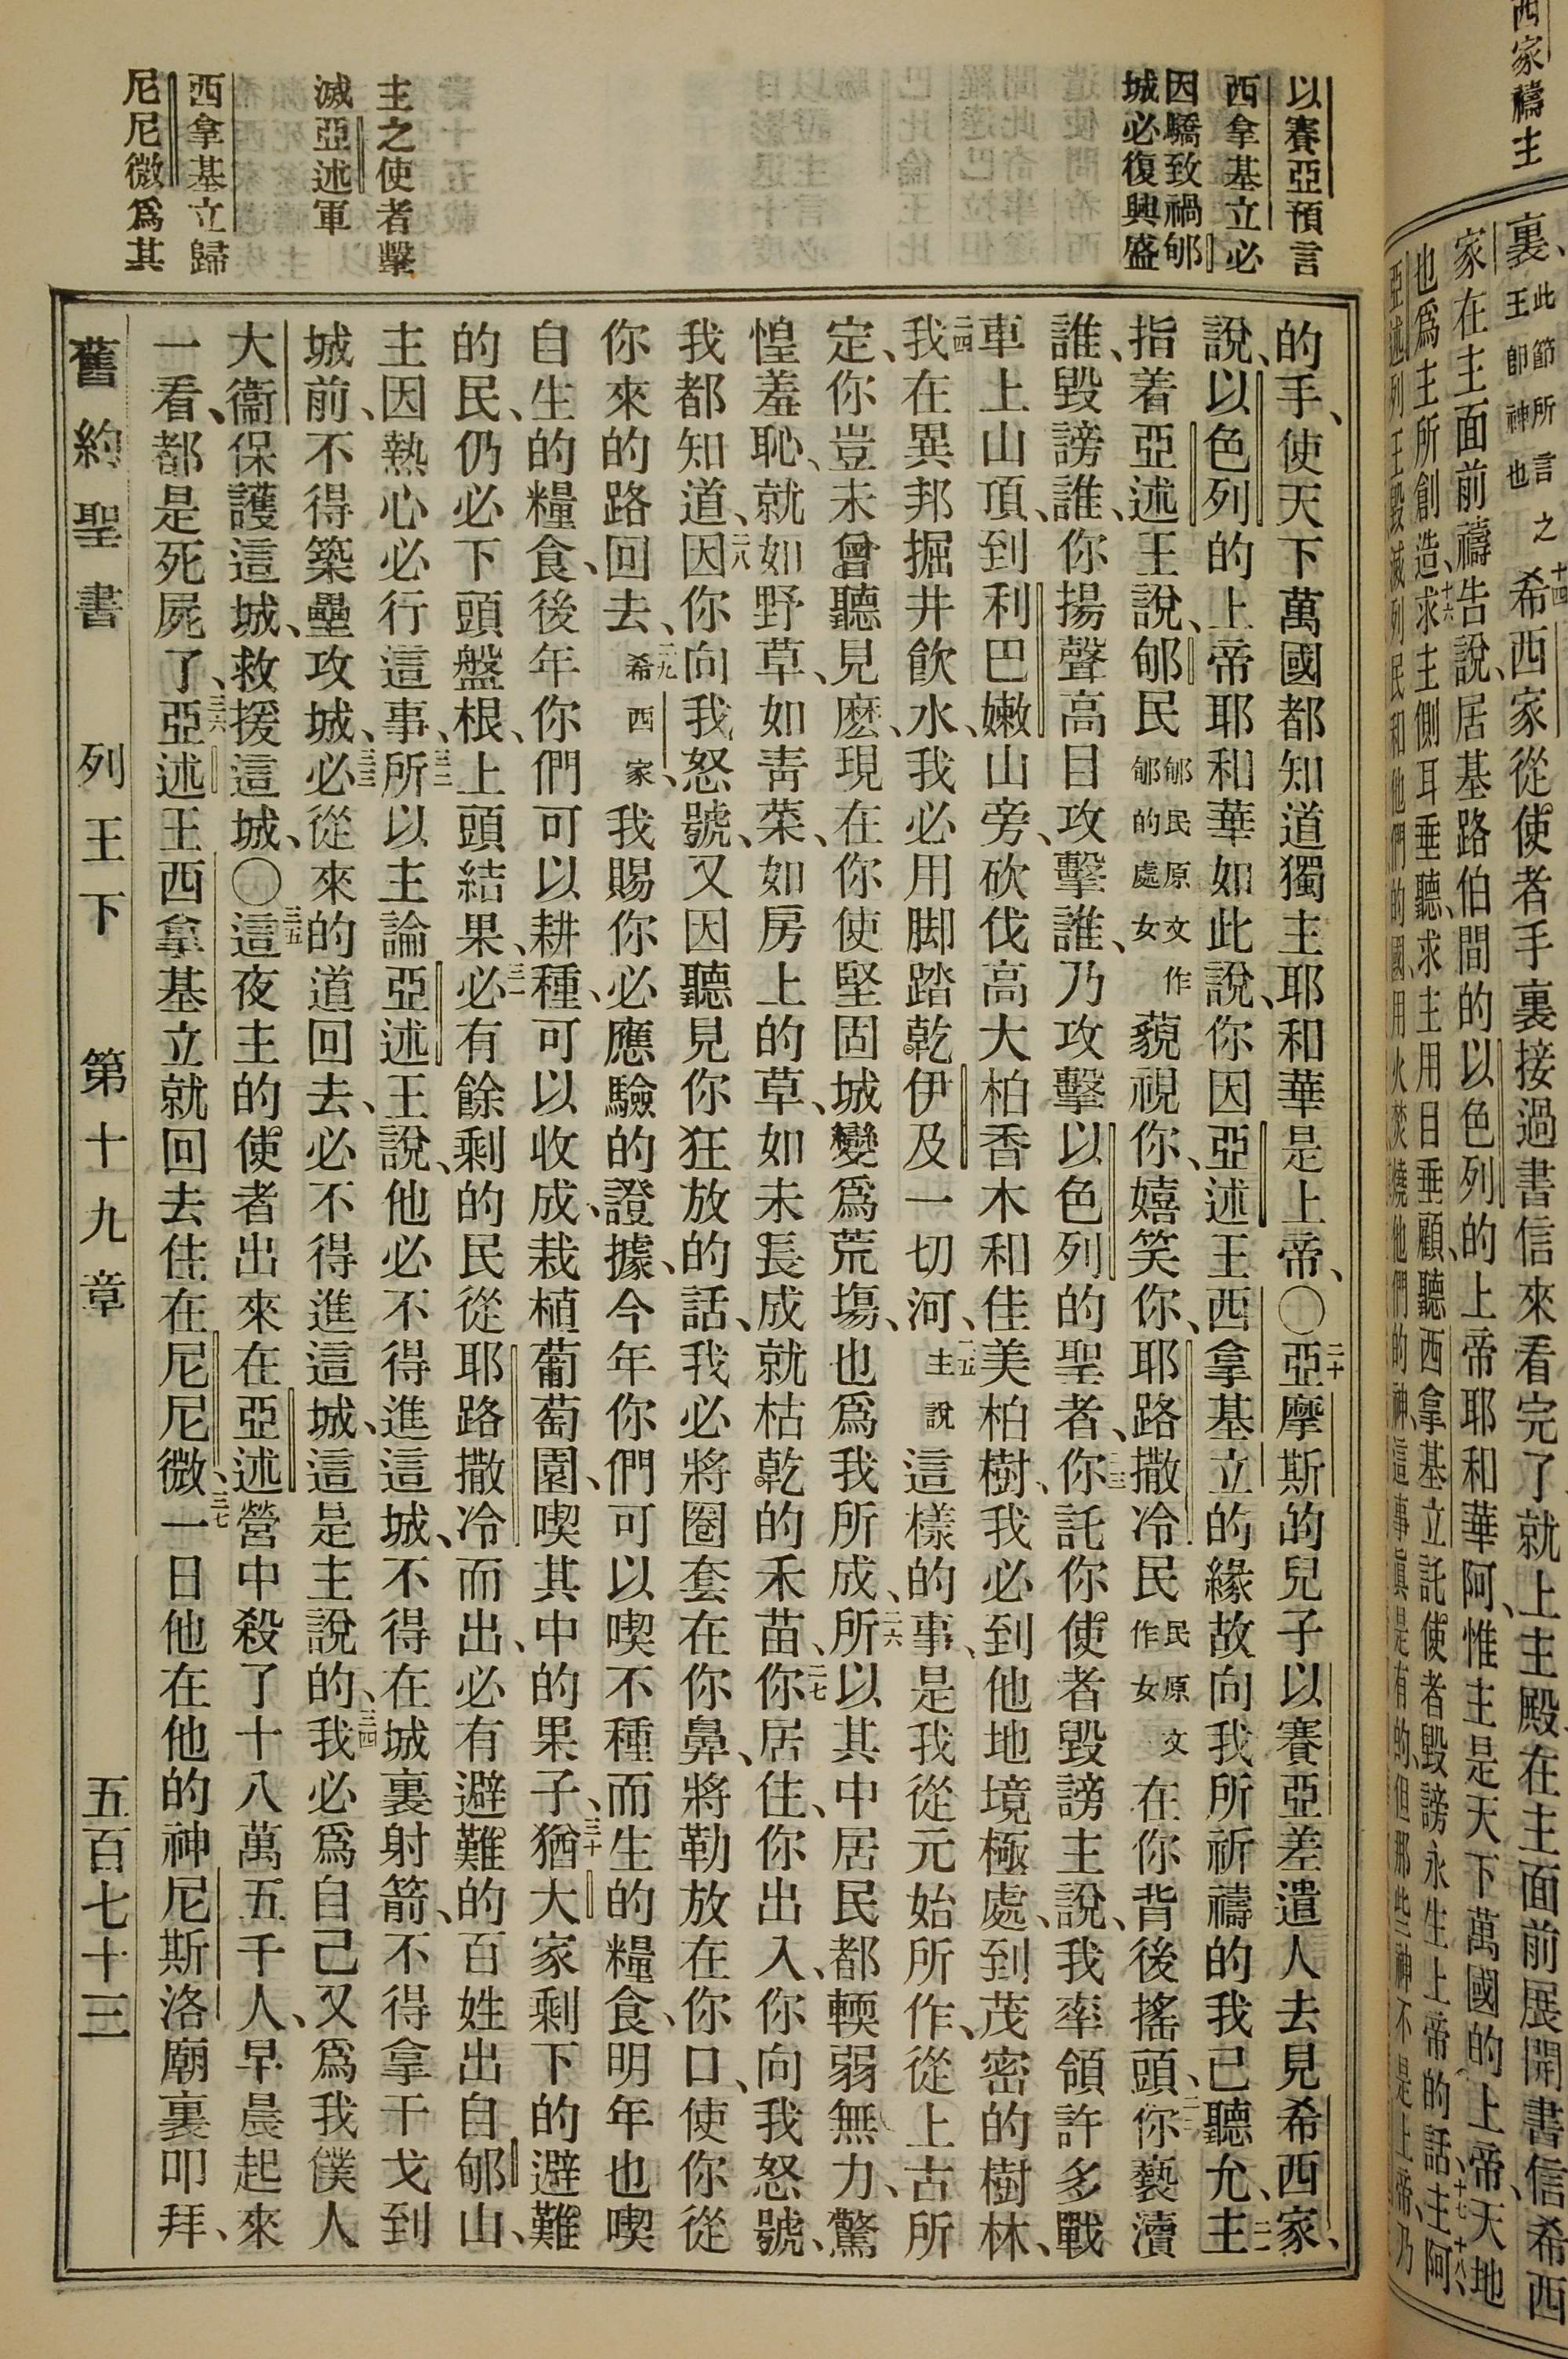 西家禱主
裏、此節所言之王卽神也十四希西家從使者手裏接過書信來看完了就上主殿在主面前展開書信希西
家在主面前禱告說、居基路伯間的以色列的上帝耶和華阿、惟主是天下萬國的上帝、天地
也爲主所創造、十六求主側耳垂聽、求主用目垂顧、聽西拿基立託使者毀謗永生上帝的話、十七主阿
亞述列王毀滅列民和他們的國、十八用火焚燒他們的神、這事眞是有的、但那些神不是上帝、乃
以賽亞預言
西拿基立必
因驕致禍郇
城必復興盛
主之使者擊
滅亞述軍
西拿基立歸
尼尼微爲其
的手、使天下萬國都知道獨主耶和華是上帝、〇二十亞摩斯的兒子以賽亞差遣人去見希西家、
說、以色列的上帝耶和華如此說、你因亞述王西拿基立的緣故向我所祈禱的我已聽允、二一主
指着亞述王說、郇民郇民原文作郇的處女藐視你、嬉笑你、耶路撒冷民民原文作女在你背後搖頭、二二你褻瀆
誰、毀謗誰、你揚聲高目攻擊誰、乃攻擊以色列的聖者、二三你託你使者毀謗主說、我率領許多戰
車上山頂、到利巴嫩山旁、砍伐高大柏香木和佳美柏樹、我必到他地境極處、到茂密的樹林、
二四我在異邦掘井飲水、我必用脚踏乾伊及一切河、二五主說這樣的事、是我從元始所作、從上古所
定、你豈未曾聽見麽、現在你使堅固城變爲荒塲、也爲我所成、二六所以其中居民都輭弱無力、驚
惶羞恥、就如野草、如靑菜、如房上的草、如未長成就枯乾的禾苗、二七你居住、你出入、你向我怒號、
我都知道、二八因你向我怒號、又因聽見你狂放的話、我必將圈套在你鼻、將勒放在你口、使你從
你來的路回去、二九希西家、我賜你必應驗的證據、今年你們可以喫不種而生的糧食、明年也喫
自生的糧食、後年你們可以耕種、可以收成、栽植葡萄園、喫其中的果子、三十猶大家剩下的避難
的民、仍必下頭盤根、上頭結果、三一必有餘剩的民從耶路撒冷而出、必有避難的百姓出自郇山、
主因熱心必行這事、三二所以主論亞述王說、他必不得進這城、不得在城裏射箭、不得拿干戈到
城前、不得築壘攻城、三三必從來的道回去、必不得進這城、這是主說的、三四我必爲自己又爲我僕人
大衞保護這城、救援這城、〇三五這夜主的使者出來在亞述營中殺了十八萬五千人、早晨起來
一看、都是死屍了、三六亞述王西拿基立就回去住在尼尼微、三七一日他在他的神尼斯洛廟裏叩拜、
舊約聖書 列王下 第十九章 五百七十三